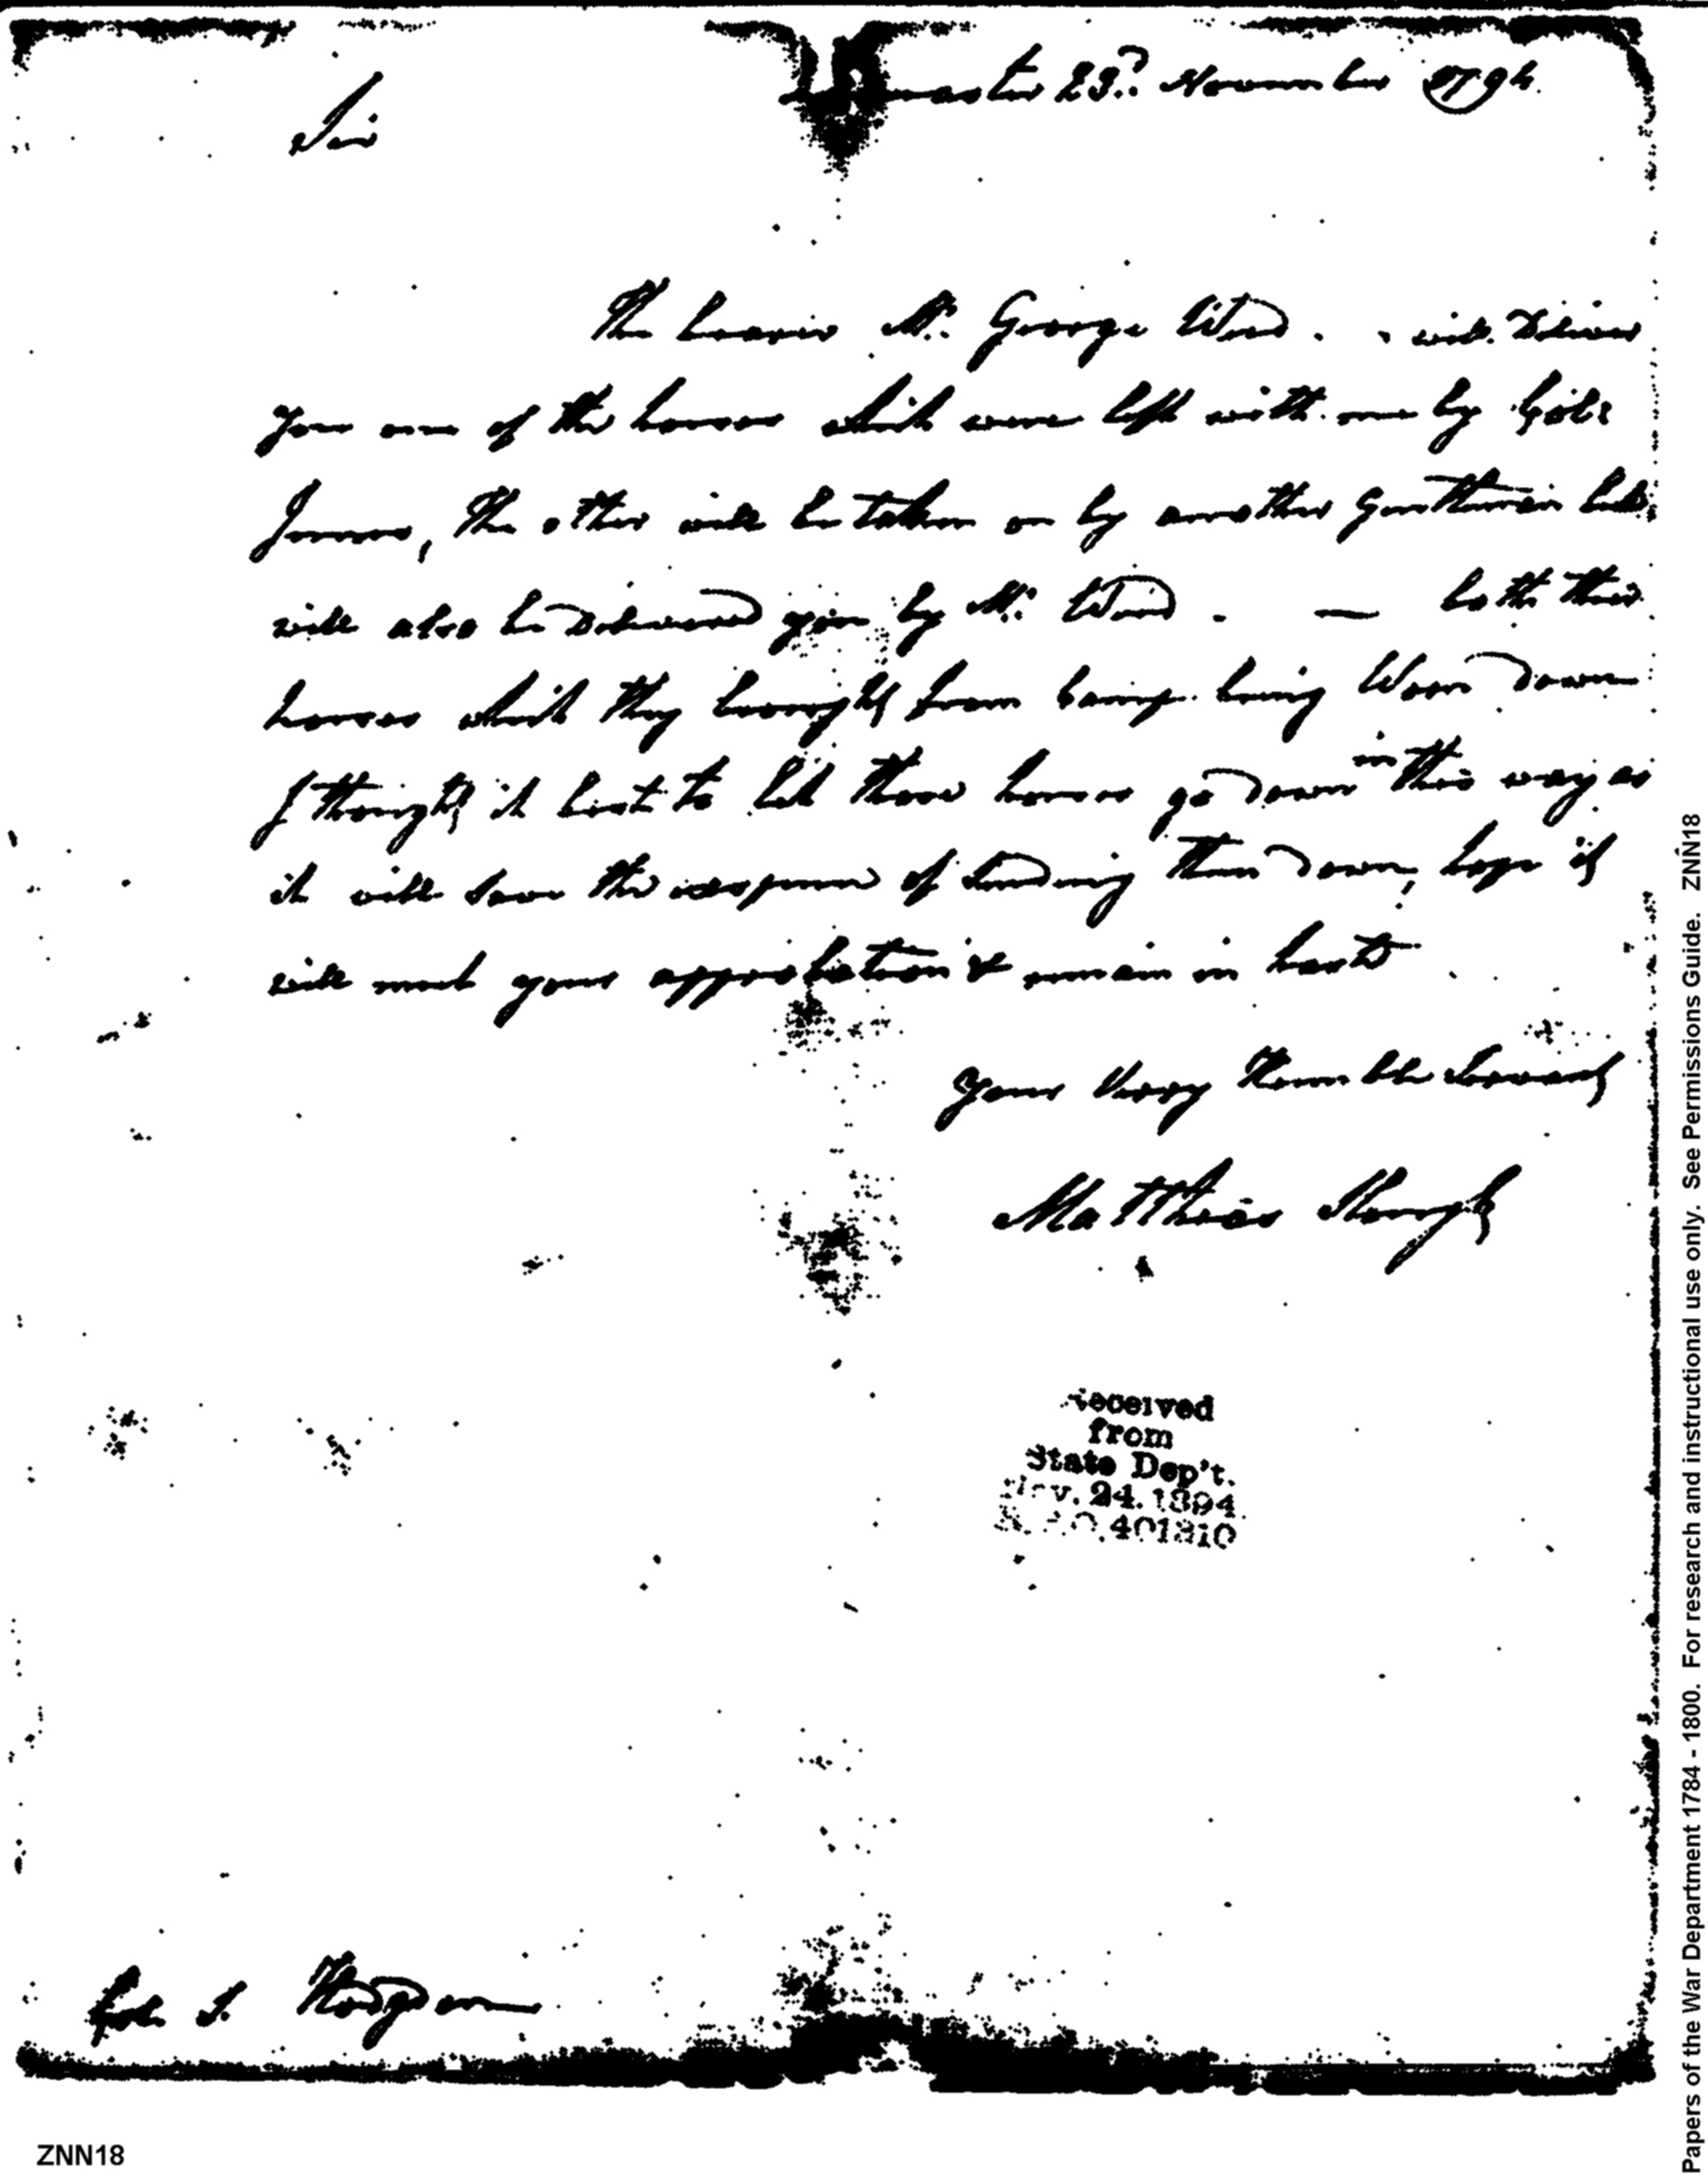 Lancaster 23d November 1794
Sir
The bearer Mr. George Wood will Deliver
you one of the horses which were left with me by Colo
The other will be taken on by another Gentleman but
will also be Delivered you by Mr. Wood. — both their
horses which they brought from Camp being Worn Down
I thought it best to let those horses go Down in this way as
it will save the expence of Sending them Down, hope it
will meet your approbation & remain in haste
your Very Humble Servant
Matthias Slough
Received
from
State Dep't.
Nov. 24. 1894
401310
Colo S. Hodgdon
ZNN18
Papers of the War Department 1784 - 1800. For research and instructional use only. See Permissions Guide. ZNN18